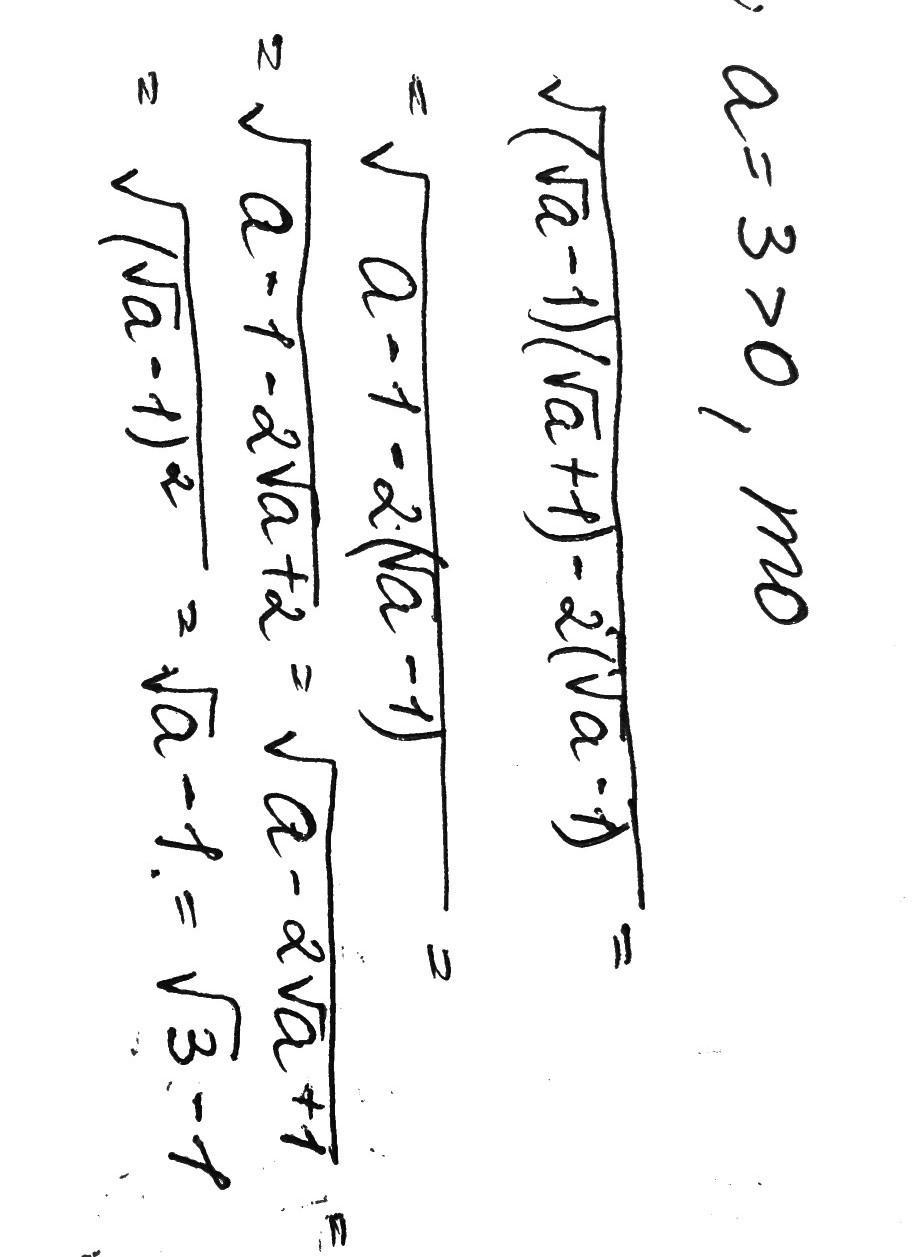 a = 3 > 0, то
√((√a - 1)(√a + 1) - 2(√a - 1)) =
= √(a - 1 - 2·(√a - 1)) =
= √(a - 1 - 2√a + 2) = √(a - 2√a + 1) =
= √((√a - 1)²) = √a - 1 = √3 - 1